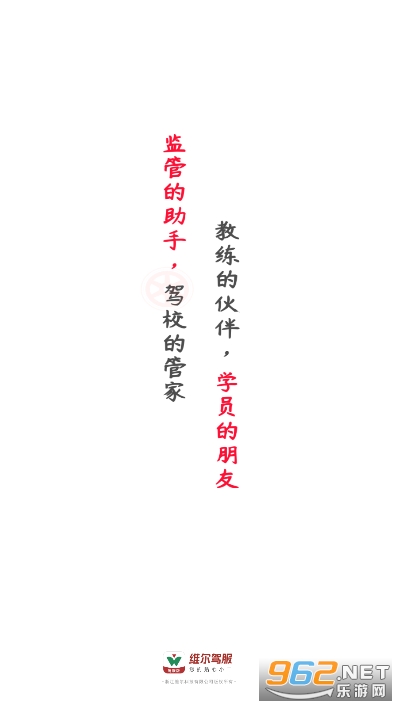 监管的助手，驾校的管家
教练的伙伴，学员的朋友
维尔驾服
962.NET
乐游网